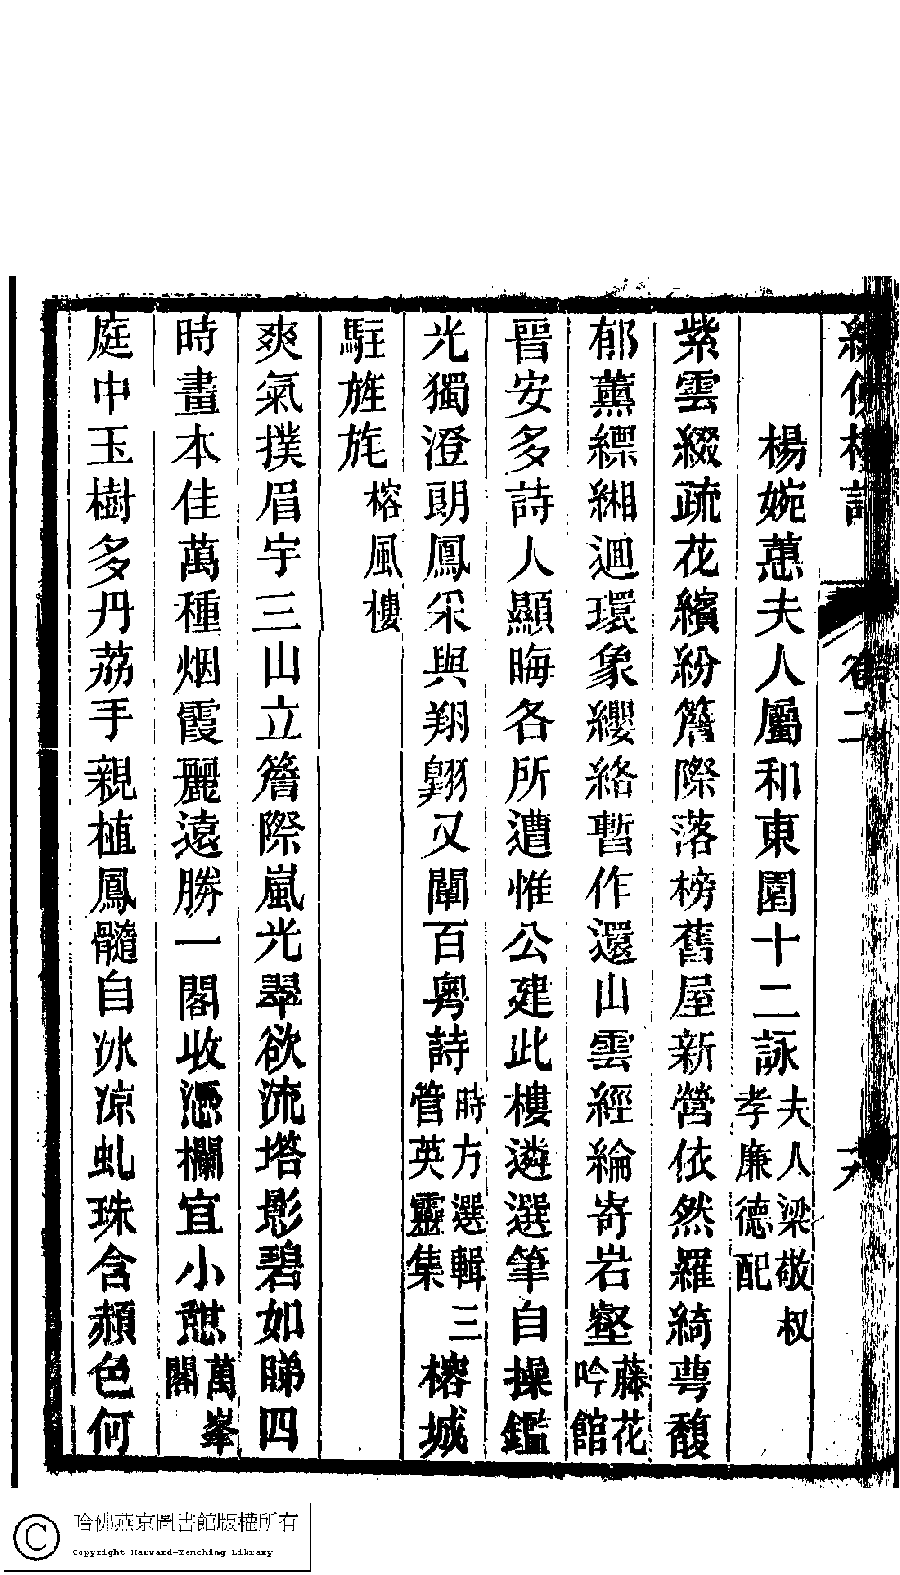 楊婉蕙夫人屬和東園十二詠夫人梁敬叔孝廉德配
紫雲綴疏花繽紛簷際落榜舊屋新營依然羅綺萼馥
郁薰縹緗迴環象纓絡暫作還山雲經綸寄岩壑藤花吟館
晉安多詩人顯晦各所遭惟公建此樓遴選筆自操鑑
光獨澄朗鳳采與翔翺又闡百粵詩時方選輯三管英靈集榕城
駐旌旄榕風樓
爽氣撲眉宇三山立簷際嵐光翠欲流塔影碧如睇四
時畫本佳萬種烟霞麗遠勝一閣收憑欄宜小憇萬峯閣
庭中玉樹多丹荔手親植鳳髓自冰凉虬珠含赬色何
卷二
哈佛燕京圖書館版權所有
Copyright Harvard-Yenching Library